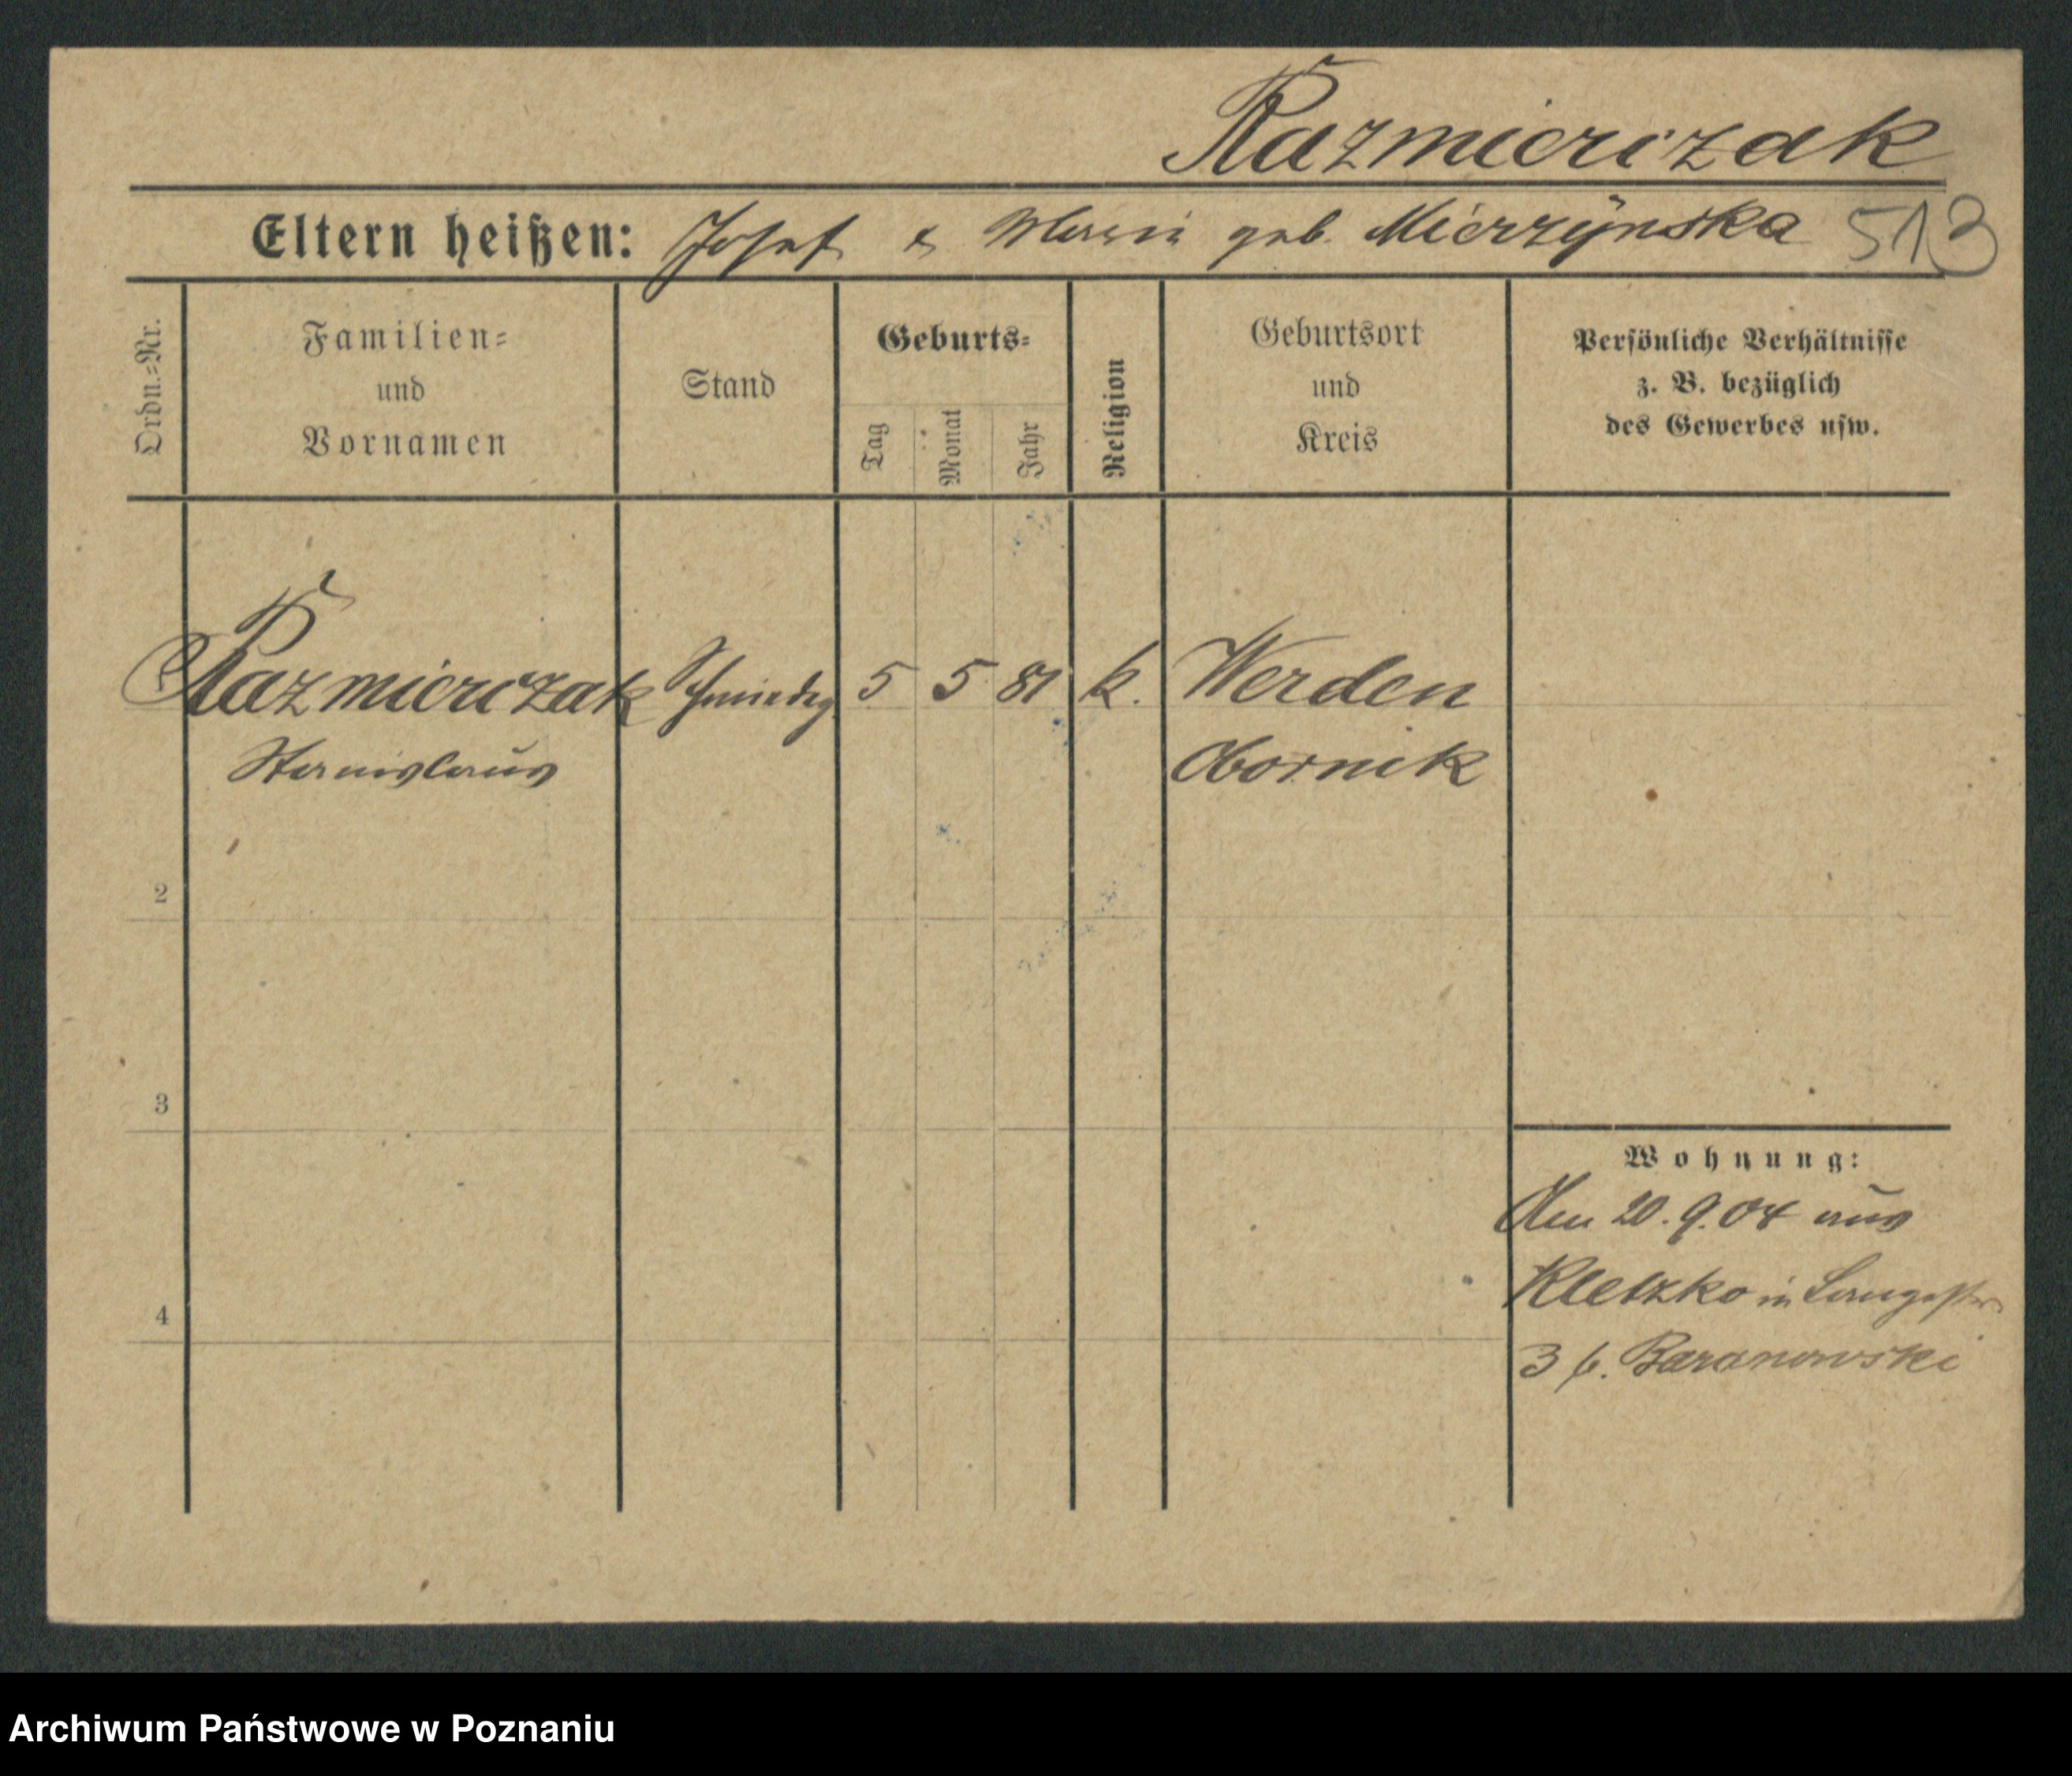 Kazmierczak
Eltern heißen: Josef & Maria geb. Mierzÿnska 513
Ordn.-Nr.
Familien-
und
Vornamen
Stand
Geburts-
Tag
Monat
Jahr
Religion
Geburtsort
und
Kreis
Persönliche Verhältnisse
z. B. bezüglich
des Gewerbes usw.
Kazmierczak Schmiedeg. 5 5 81 k. Werden
Stanislaus Obornik
2
3
4
Wohnung:
Am 20.9.04 aus
Kletzko in Langestr.
3 b. Baranowski
Archiwum Państwowe w Poznaniu